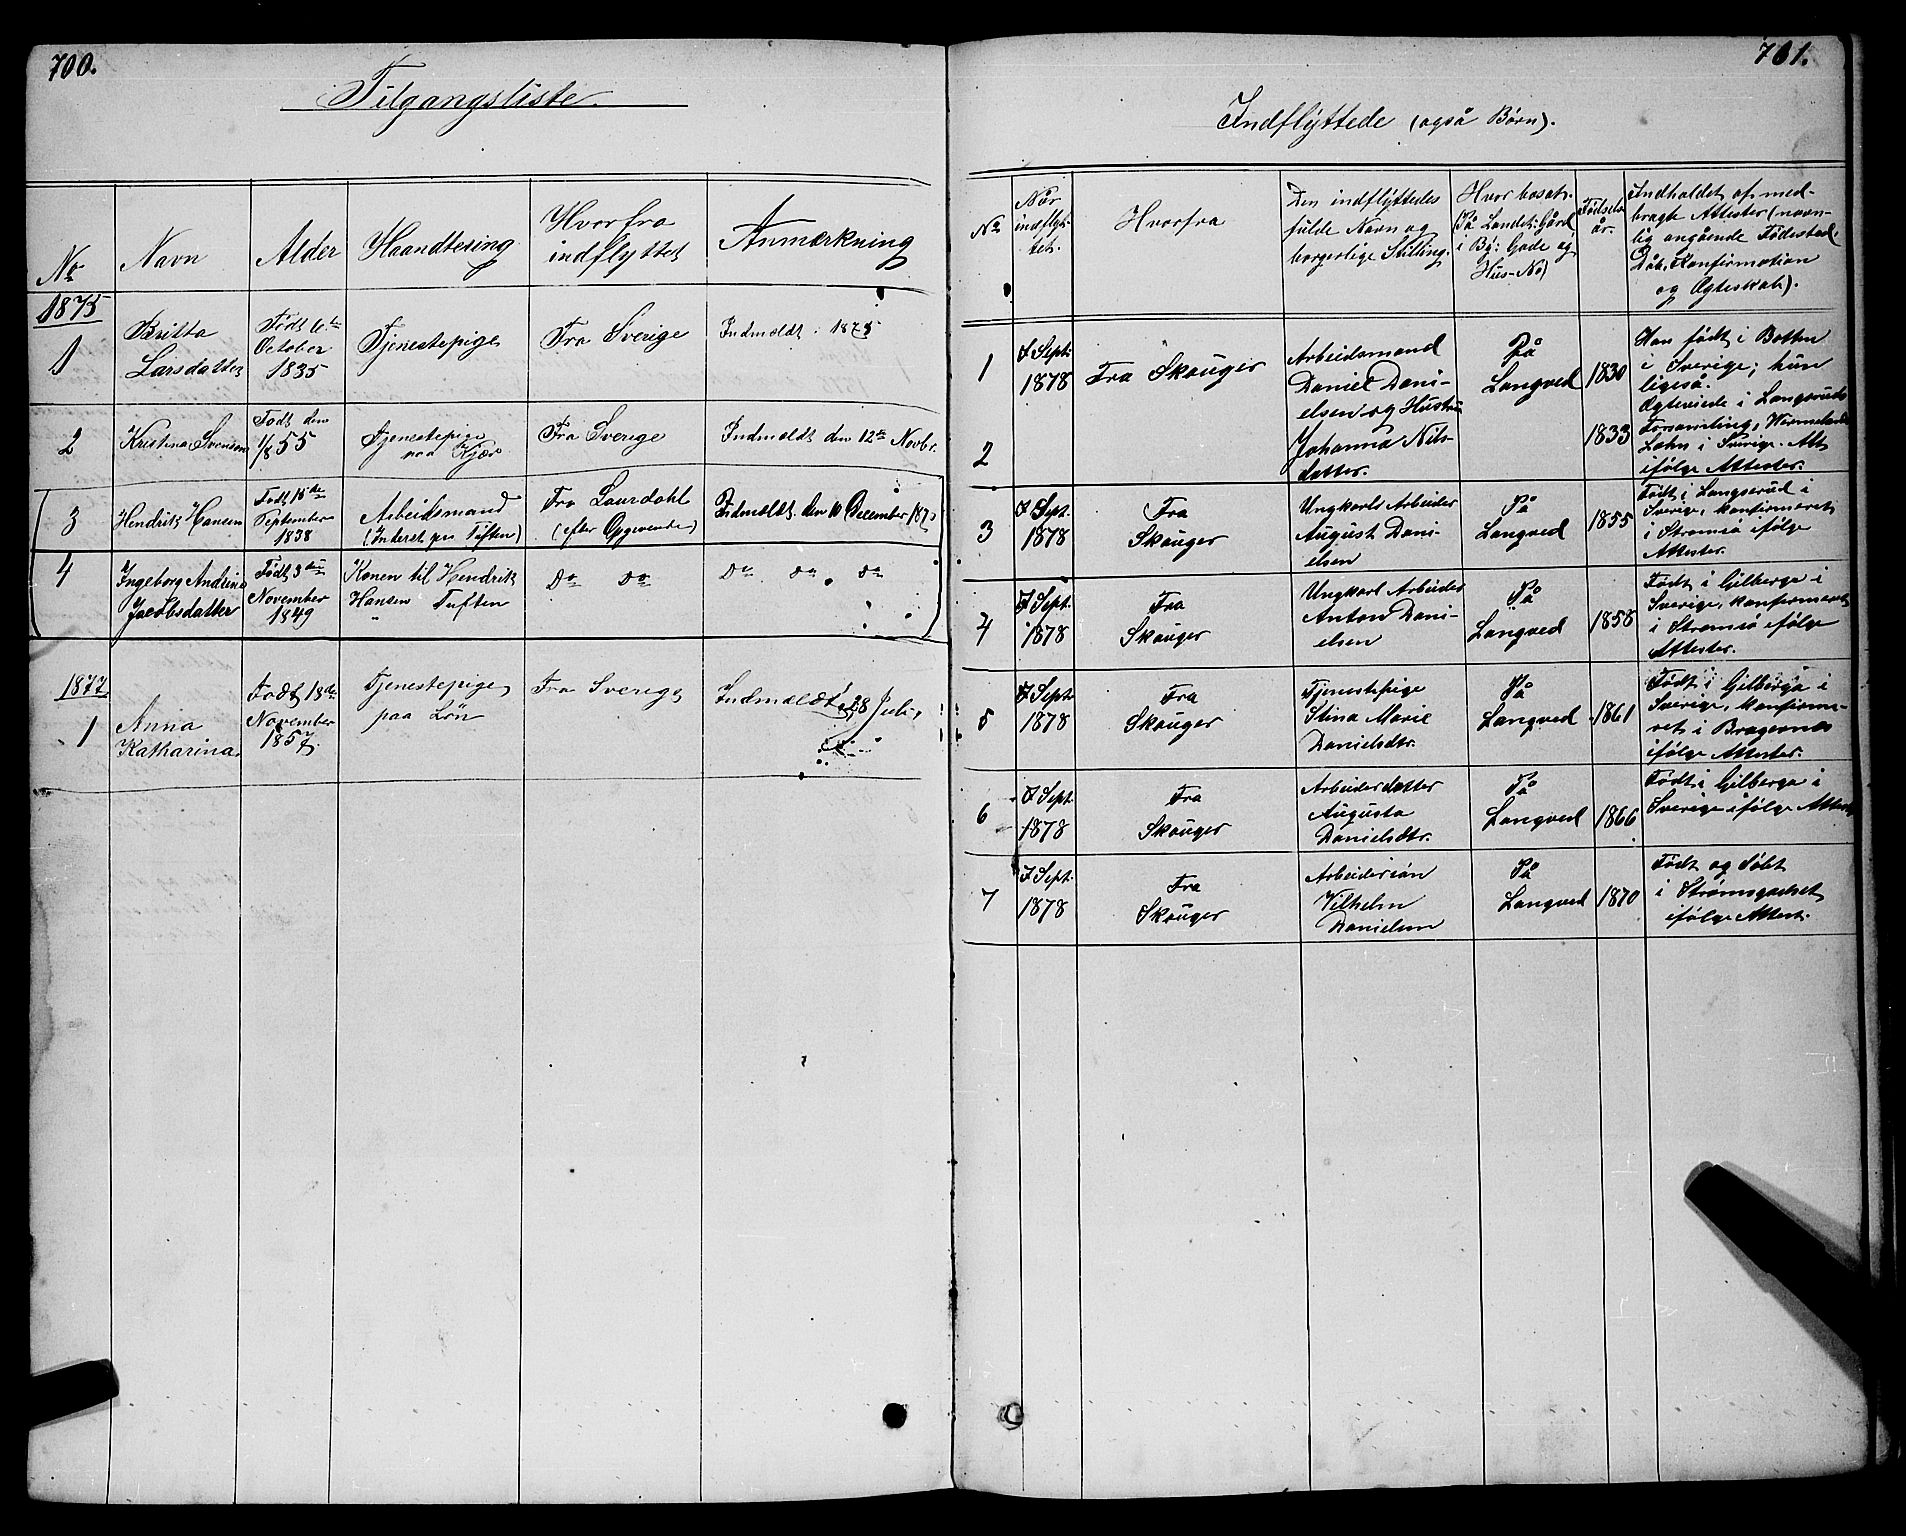 700.
Tilgangsliste
No
Navn
Alder
Haandtering
Hvorfra
indflyttet
Anmærkning
1875
1
Britta
Larsdatter
Født 6te
October
1835
Tjenestepige
Fra Sverige
Indmeldt i 1875
2
Kristina Svenson
Født den
1/8 55
Tjenestepige
paa Kjær
Fra Sverige
Indmeldt den 12te Novbr.
3
Hendrik Hansen
Født 15de
September
1838
Arbeidsmand
(Inderst på Tuften)
Fra Laurdahl
(efter Opgivende)
Indmeldt den 10 December 1875
4
Ingeborg Andrine
Jacobsdatter
Født 3die
November
1849
Konen til Hendrik
Hansen Tuften
Do Do
Do Do Do
1877
1
Anna
Katharina
Født 18de
November
1857
Tjenestepige
paa Løn
Fra Sverige
Indmeldt 28 Juli
701.
Indflyttede (også Børn).
No
Når
indflyt-
tet.
Hvorfra
Den indflyttedes
fulde Navn og
borgerlige Stilling.
Hvor bosat.
(På Landet: Gård
i By: Gade og
Hus-No)
Fødsels-
år.
Indholdet af med-
bragte Attester (navn-
lig angående Fødested,
Dåb, Konfirmation
og Ægteskab).
1
7 Sept.
1878
Fra Skouger
Arbeidsmand
Daniel Dani-
elsen og Hustru
På
Langved
1830
Han født i Botten
i Sverige; hun
ligeså.
Ægteviede i Langseruds
Forsamling, Wermelands
Lehn i Sverige. Alt
ifølge Attester.
2
Johanna Nils-
datter.
1833
3
7 Sept.
1878
Fra
Skouger
Ungkarl Arbeider
August Dani-
elsen
På
Langved
1855
Født i Langserud i
Sverige, konfirmeret
i Strømsø ifølge
Attester.
4
7 Sept.
1878
Fra
Skouger
Ungkarl Arbeider
Anton Dani-
elsen
På
Langved
1858
Født i Gilberga i
Sverige, konfirmeret
i Strømsø ifølge
Attester.
5
7 Sept.
1878
Fra
Skouger
Tjenestepige
Stina Marie
Danielsdtr.
På
Langved
1861
Født i Gilberga i
Sverige, konfirme-
ret i Bragernæs
ifølge Attester.
6
7 Sept.
1878
Fra
Skouger
Arbeiderdatter
Augusta
Danielsdtr.
På
Langved
1866
Født i Gilberga i
Sverige ifølge Attest
7
7 Sept.
1878
Fra
Skouger
Arbeidersøn
Vilhelm
Danielsen
På
Langved
1870
Født og døbt
i Strømsgodset
ifølge Attest.